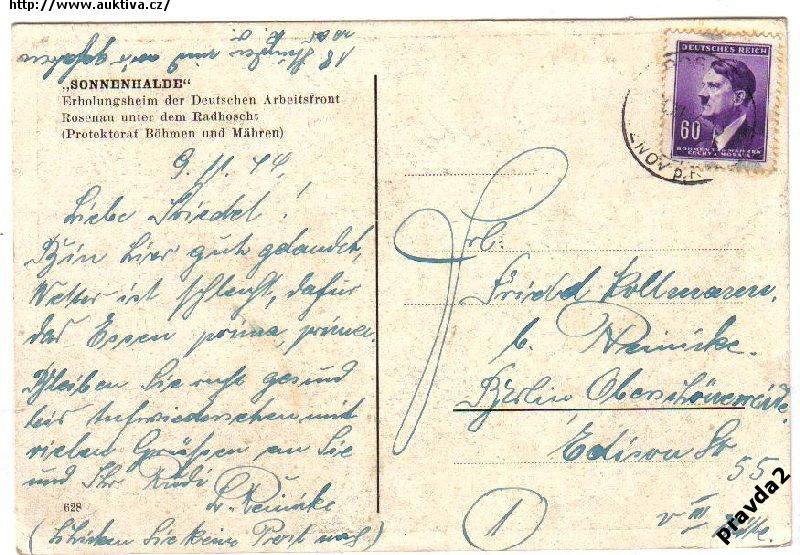 http://www.auktiva.cz/
„SONNENHALDE“
Erholungsheim der Deutschen Arbeitsfront
Rosenau unter dem Radhoscht
(Protektorat Böhmen und Mähren)
9. 11. 44.
Liebe Friedel!
Bin hier gut gelandet,
Wetter ist schlecht, dafür
das Essen prima, prima.
Bleiben Sie recht gesund
bis Aufwiedersehen mit
vielen Grüßen an Sie
und Ihr Rudi
L. Reinicke
(Schicken Sie keine Post nach)
628
DEUTSCHES REICH
60
BÖHMEN U. MÄHREN
ČECHY A MORAVA
NOV P. R
Frl.
Friedel Kollmann.
b. Reinicke.
Berlin Oberschöneweide.
Edison Str
55
v III
1
pravda2